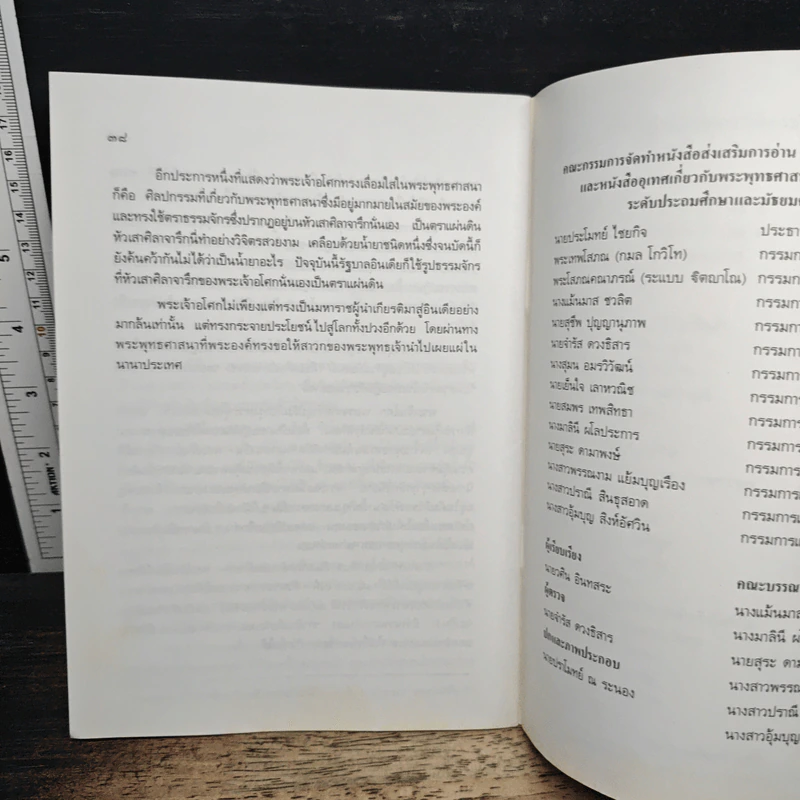 ๓๘
อีกประการหนึ่งที่แสดงว่าพระเจ้าอโศกทรงเลื่อมใสในพระพุทธศาสนา
ก็คือ ศิลปกรรมที่เกี่ยวกับพระพุทธศาสนาซึ่งมีอยู่มากมายในสมัยของพระองค์
และทรงใช้ตราธรรมจักรซึ่งปรากฏอยู่บนหัวเสาศิลาจารึกนั่นเอง เป็นตราแผ่นดิน
หัวเสาศิลาจารึกนี้ทำอย่างวิจิตรสวยงาม เคลือบด้วยน้ำยาชนิดหนึ่งซึ่งจนบัดนี้ก็
ยังค้นคว้ากันไม่ได้ว่าเป็นน้ำยาอะไร ปัจจุบันนี้รัฐบาลอินเดียก็ใช้รูปธรรมจักร
ที่หัวเสาศิลาจารึกของพระเจ้าอโศกนั่นเองเป็นตราแผ่นดิน
พระเจ้าอโศกไม่เพียงแต่ทรงเป็นมหาราชผู้นำเกียรติมาสู่อินเดียอย่าง
มากล้นเท่านั้น แต่ทรงกระจายประโยชน์ไปสู่โลกทั้งปวงอีกด้วย โดยผ่านทาง
พระพุทธศาสนาที่พระองค์ทรงขอให้สาวกของพระพุทธเจ้านำไปเผยแผ่ใน
นานาประเทศ
คณะกรรมการจัดทำหนังสือส่งเสริมการอ่าน
และหนังสืออุเทศเกี่ยวกับพระพุทธศาส
ระดับประถมศึกษาและมัธยม
นายประโมทย์ ไชยกิจ ประธา
พระเทพโสภณ (กมล โกวิโท) กรรมก
พระโสภณคณาภรณ์ (ระแบบ ฐิตญาโณ) กรรมกา
นางแม้นมาส ชวลิต กรรมกา
นายสุชีพ ปุญญานุภาพ กรรมการ
นายจำรัส ดวงธิสาร กรรมการ
นางสุมน อมรวิวัฒน์ กรรมการ
นายเย็นใจ เลาหวณิช กรรมการ
นายสมพร เทพสิทธา กรรมการ
นางมาลินี ผโลประการ กรรมการ
นายสุระ ดามาพงษ์ กรรมการ
นางสาวพรรณงาม แย้มบุญเรือง กรรมการ
นางสาวปราณี สินธุสอาด กรรมการแ
นางสาวอุ้มบุญ สิงห์อัศวิน กรรมการแ
ผู้เรียบเรียง
นายวศิน อินทสระ
ผู้ตรวจ
นายจำรัส ดวงธิสาร
ปกและภาพประกอบ
นายปราโมทย์ ณ ระนอง
คณะบรรณ
นางแม้นมาส
นางมาลินี ผ
นายสุระ ดาม
นางสาวพรรณ
นางสาวปราณี
นางสาวอุ้มบุญ